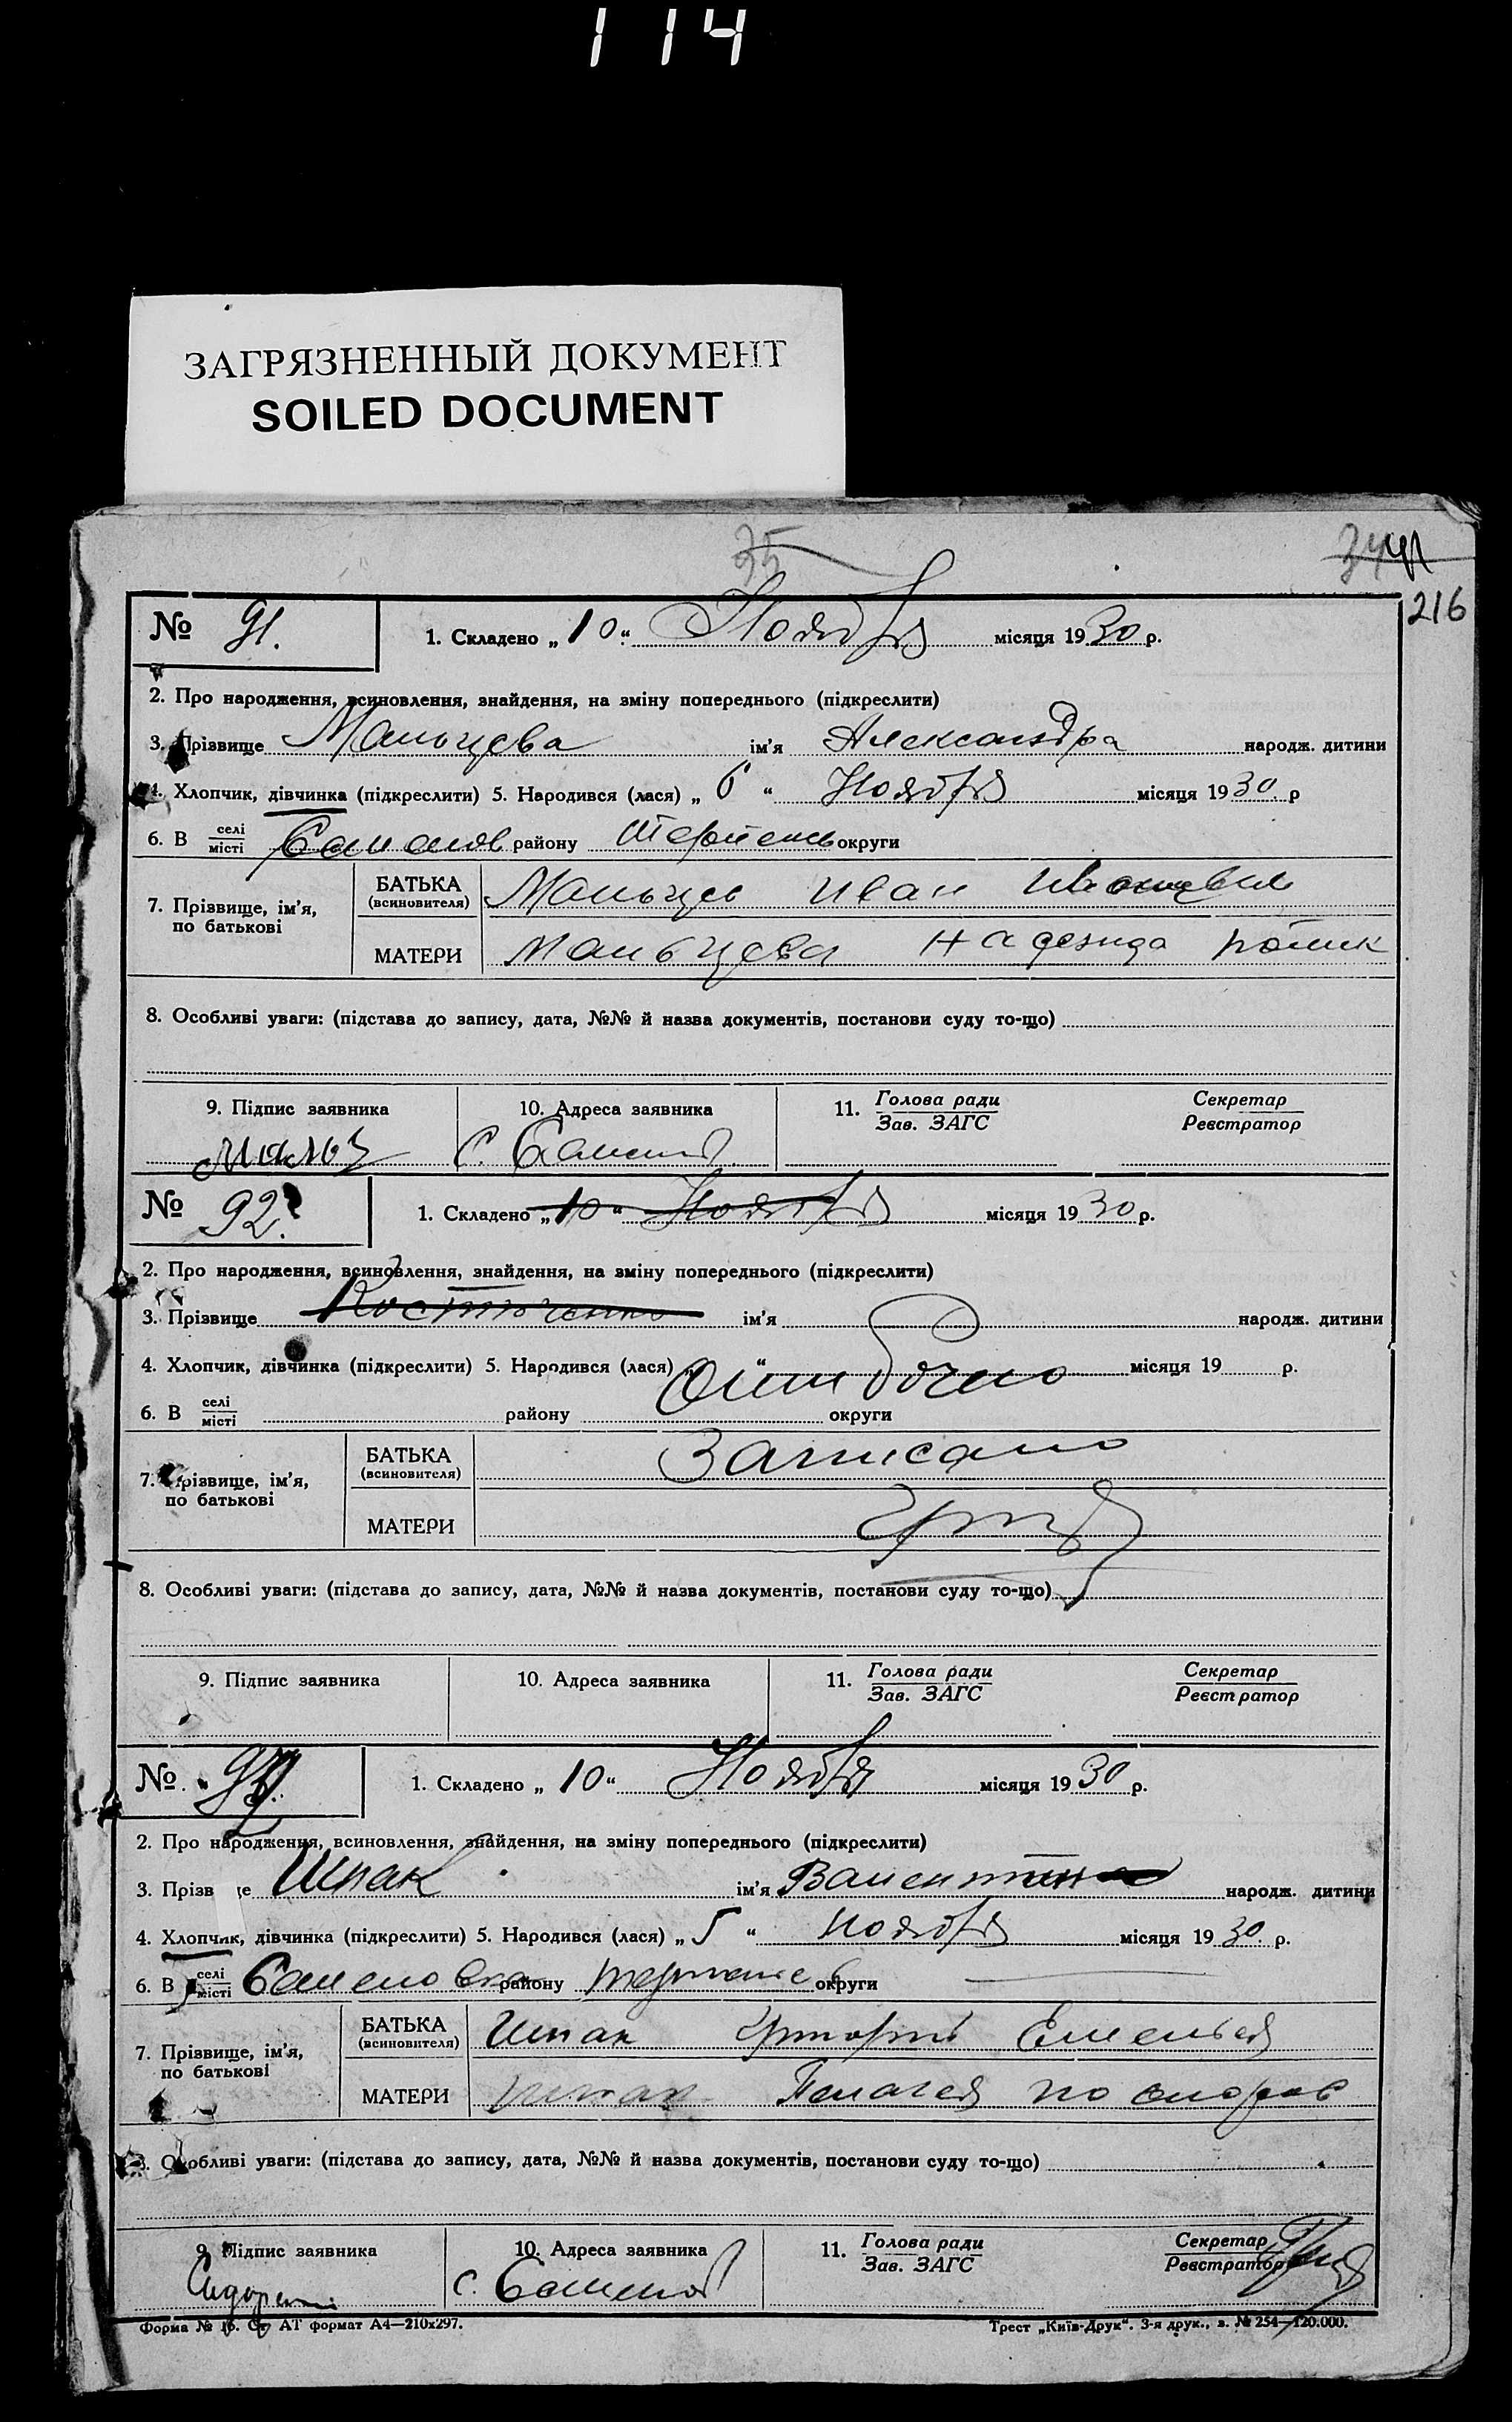 114
ЗАГРЯЗНЕННЫЙ ДОКУМЕНТ
SOILED DOCUMENT
35
216
№ 91. 1. Складено „10“ Ноября місяця 1930 р.
2. Про народження, всиновлення, знайдення, на зміну попереднього (підкреслити)
3. Прізвище Мальцева ім'я Александра народж. дитини
4. Хлопчик, дівчинка (підкреслити) 5. Народився (лася) „6“ Ноября місяця 1930 р
6. В селі місті району округи
7. Прізвище, ім'я, по батькові
БАТЬКА (всиновителя) Мальцев Иван
МАТЕРИ Мальцева Надежда
8. Особливі уваги: (підстава до запису, дата, №№ й назва документів, постанови суду то-що)
9. Підпис заявника 10. Адреса заявника 11. Голова ради Зав. ЗАГС Секретар Реєстратор
с.
№ 92. 1. Складено „10“ Ноября місяця 1930 р.
2. Про народження, всиновлення, знайдення, на зміну попереднього (підкреслити)
3. Прізвище Костюченко ім'я народж. дитини
4. Хлопчик, дівчинка (підкреслити) 5. Народився (лася) „ “ місяця 19 р.
Ошибочно
6. В селі місті району округи
7. Прізвище, ім'я, по батькові
БАТЬКА (всиновителя) Записано
МАТЕРИ
8. Особливі уваги: (підстава до запису, дата, №№ й назва документів, постанови суду то-що)
9. Підпис заявника 10. Адреса заявника 11. Голова ради Зав. ЗАГС Секретар Реєстратор
№ 1. Складено „10“ Ноября місяця 1930 р.
2. Про народження, всиновлення, знайдення, на зміну попереднього (підкреслити)
3. Шпак ім'я Валентин народж. дитини
4. Хлопчик, дівчинка (підкреслити) 5. Народився (лася) „5“ Ноября місяця 1930 р.
6. В селі місті району округи
7. Прізвище, ім'я, по батькові
БАТЬКА (всиновителя) Шпак Григорий Емельян
МАТЕРИ Шпак Пелагея
8. Особливі уваги: (підстава до запису, дата, №№ й назва документів, постанови суду то-що)
9. Підпис заявника 10. Адреса заявника 11. Голова ради Зав. ЗАГС Секретар Реєстратор
с.
Форма № 16. Ст. АТ формат А4—210x297. Трест „Київ-Друк“. 3-я друк., з. № 254—120.000.